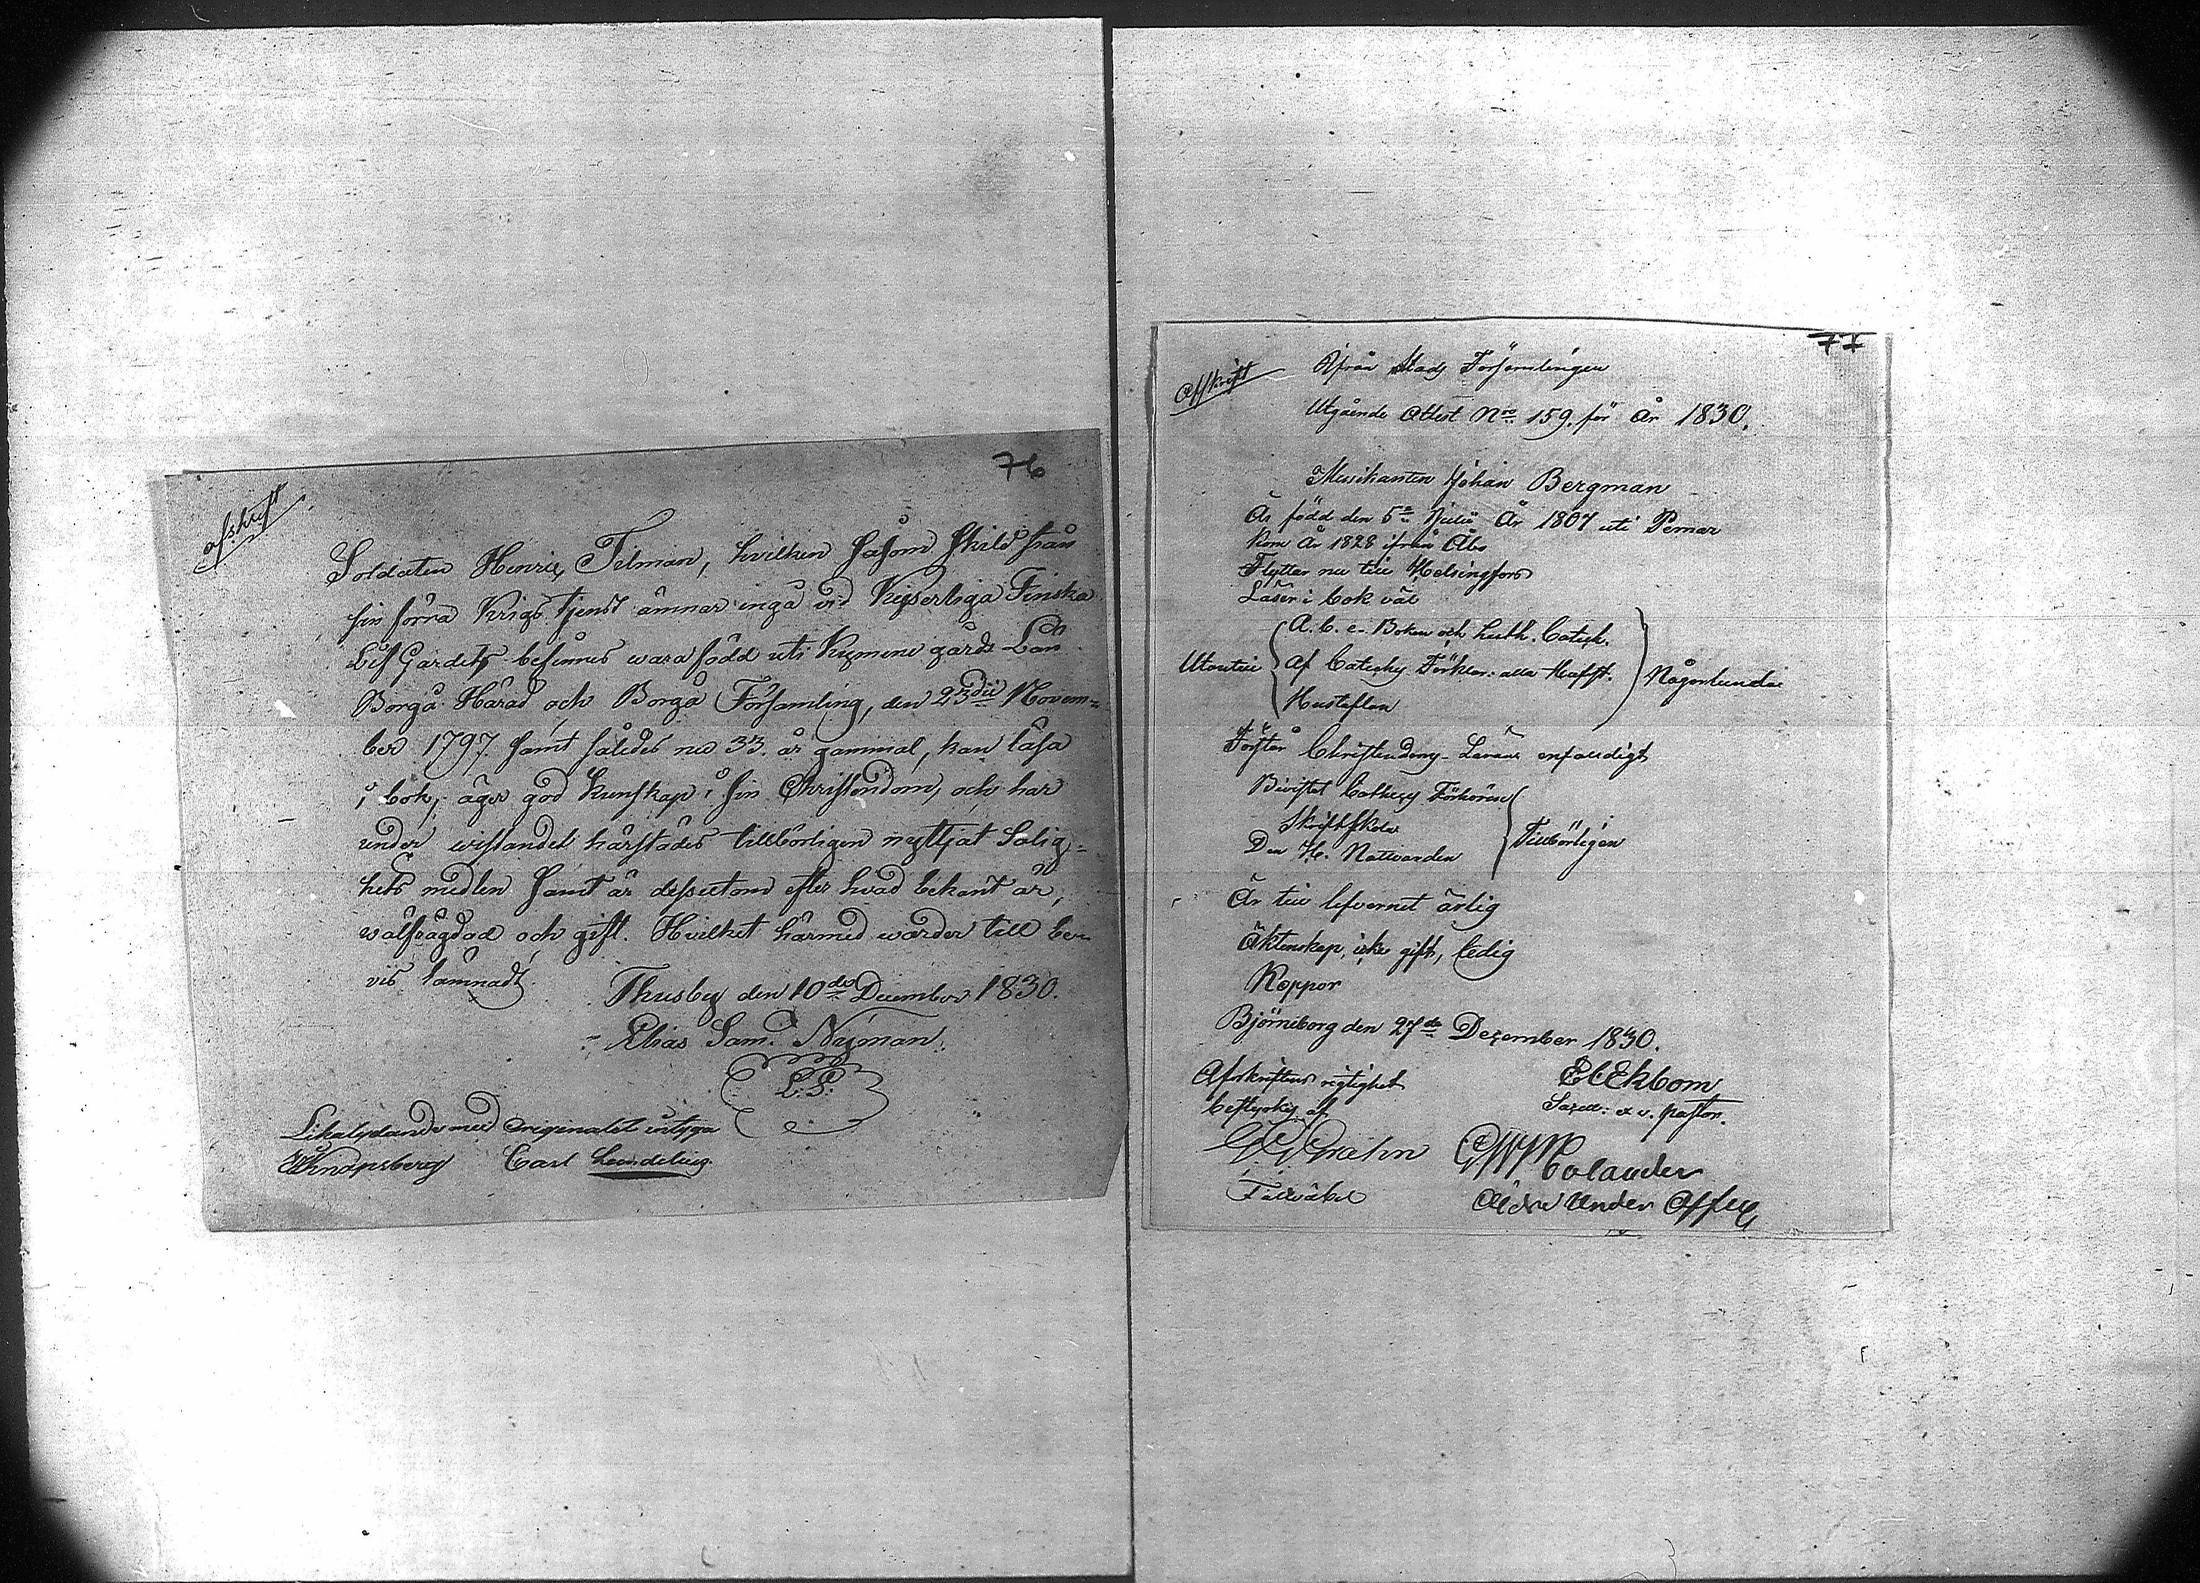 76
afskrift
Soldaten Henric Tilman, hvilken såsom skild från
sin förra Krigs tjenst ämnar ingå vid Kejserliga Finska
Lif Gardet, befinnes wara född uti Kymene gårds Län
Borgå Härad och Borgå Församling, den 23dii Novem=
ber 1797. samt således nu 33. år gammal, kan läsa
i bok, äger god kunskap i sin Christendom, och har
under wistandet härstädes tillbörligen nyttjat Salig=
hets medlen samt är dessutom efter hvad bekant är,
wälfrägdad och gift. Hvilket härmed warder till be=
vis lämnadt.
Thusby den 10de December 1830.
Elias Sam. Nyman.
L.S.
Likalydande med originalet intyga
Knapsberg Carl
77
Afskrift
Ifrån Stads Församlingen
Utgående Attest Nro 159. för År 1830.
Musikanten Johan Bergman
Är född den 5e Julii År 1807 uti Pemar
Kom År 1828 ifrån Åbo
Flyttar nu till Helsingfors
Läser i bok väl
A. b. c- Boken och Luth. Catech.
Utantill Af Cateches Förklar: alla Hufst. Någorlunda
Hustaflan
Förstår Christendoms Läran enfaldigt
Bevistat Cateches Förhören
Skriftskola Tillbörligen
Den H. Nattvarden
Är till lefvernet ärlig
Äktenskap, icke gift, ledig
Koppor
Björneborg den 27de December 1830.
Afskriftens rigtighet E C Ekbom
bestyrkes af Sacell: v. pastor.
G G Grahn Colander
Fältväbel Äldre Under Officer